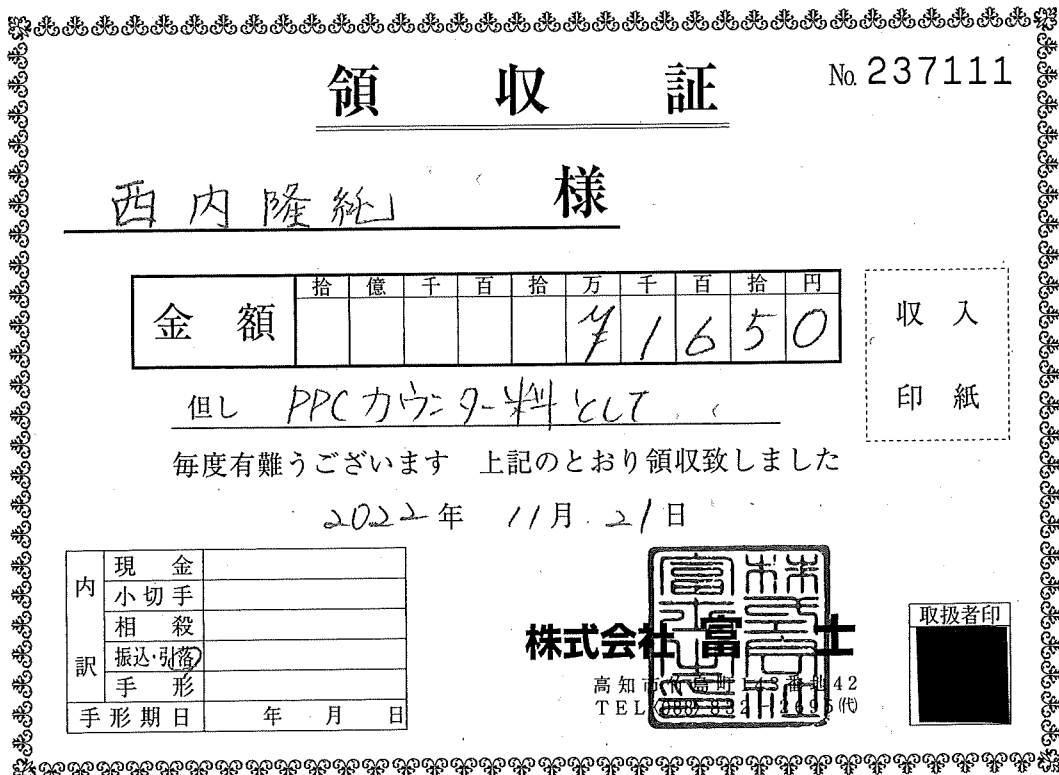 領収証
No. 237111
西内隆純 様
金額
拾 億 千 百 拾 万 千 百 拾 円
¥1650
収入
印紙
但し PPCカウンター料として
毎度有難うございます 上記のとおり領収致しました
2022年 11月 21日
内訳
現金
小切手
相殺
振込・引落
手形
手形期日 年 月 日
株式会社 富士
高知市竹島町143番地42
TEL(088)832-2695(代)
取扱者印